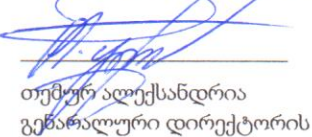 თემურ ალექსანდრია
გენარალური დირექტორის